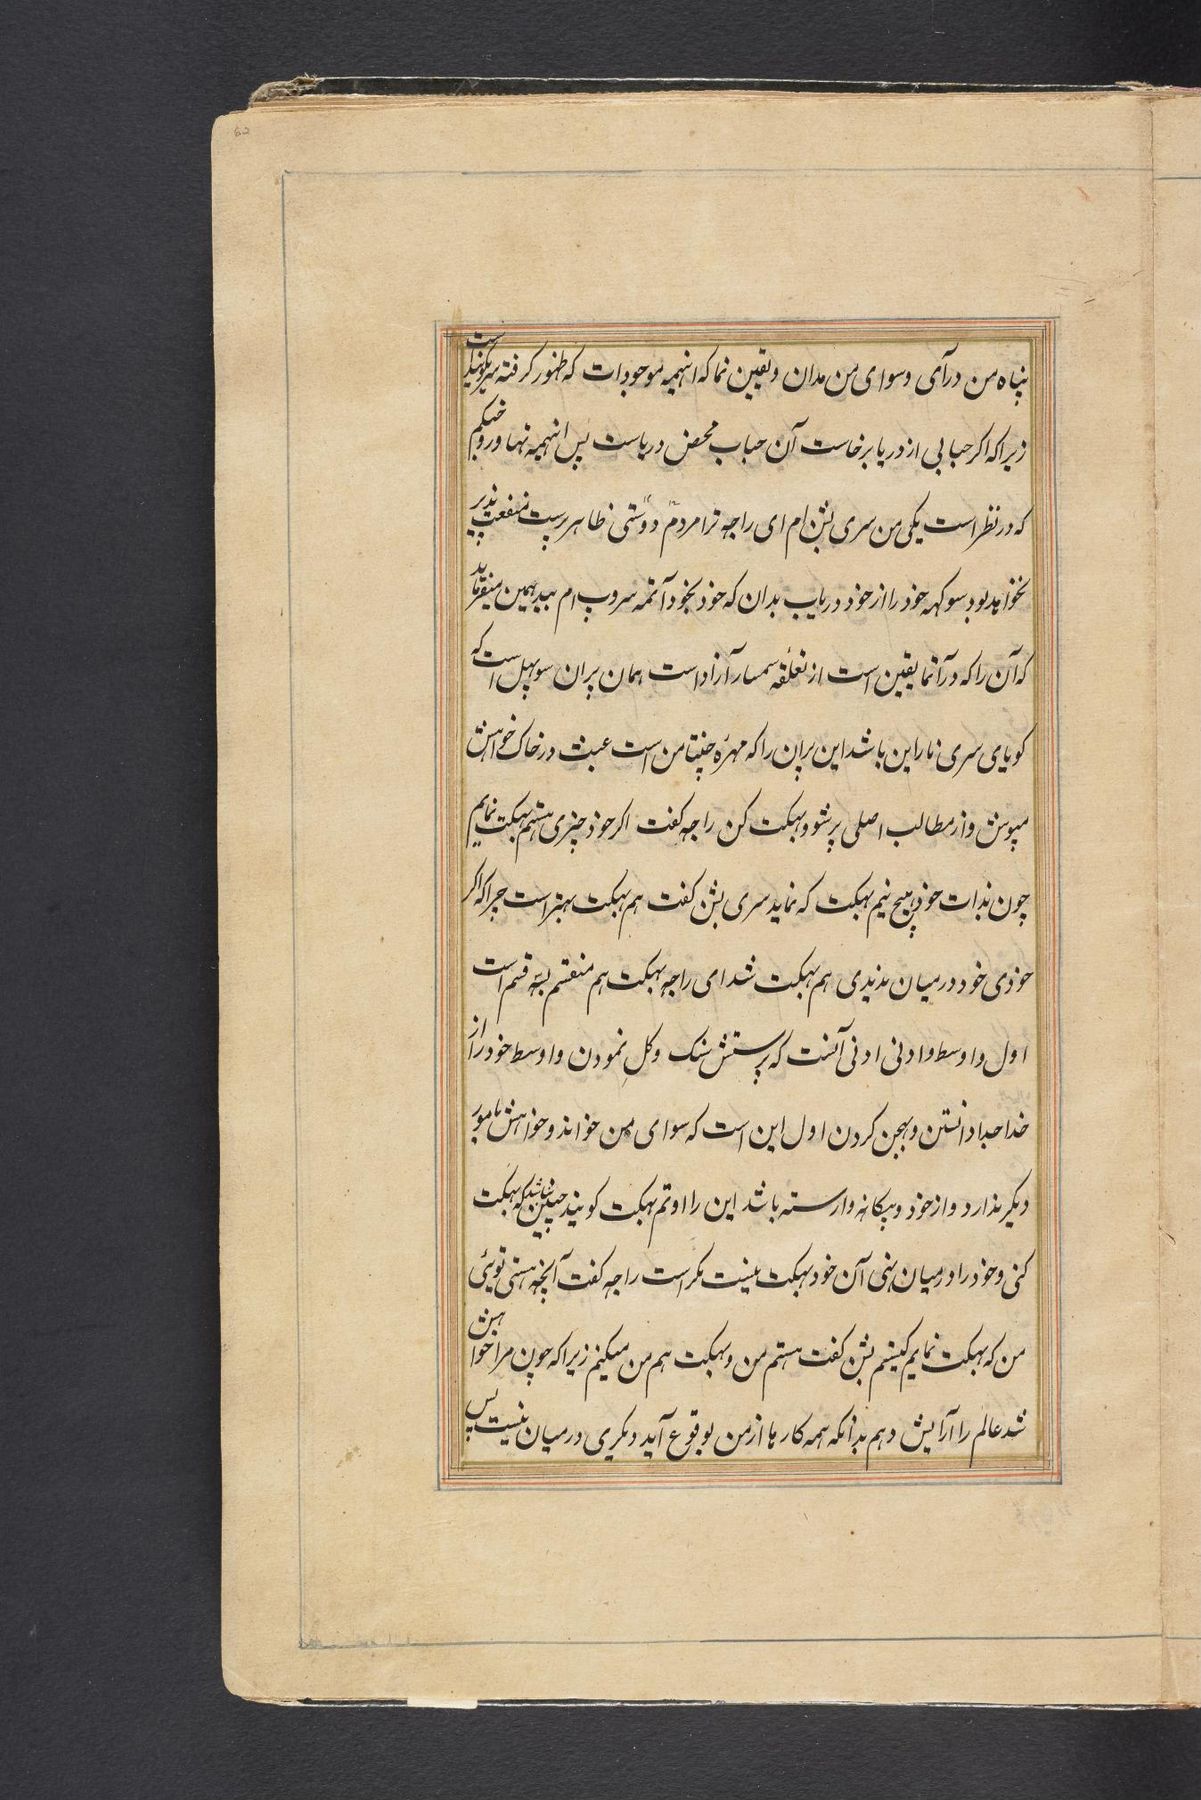 پناه من درآی وسوای من مدان ویقین نما که اینهمه موجودات که ظهور کرفته است
زیرا که اکر حبابی از دریا برخاست آن حباب محض دریاست پس اینهمه نها
که در نظر است یکی من سری بشن ام ای راجه ترا مردم دوستی ظاهر پرست منفعت پذیر
نخواهد بود سو کهه خود را از خود دریاب بدان که خود بخود آتمه سروپ ام بید همین میفرماید
که آن را که در آتما یقین است از تعلقه سمسار آزاد است همان پران سوپهل است که
کویای سری ناراین باشد این پران را که مهره چنتامن است عبث در خاک خواهش
مپوش واز مطالب اصلی پر شو وبهکت کن راجه کفت اکر خود چیزی هستم بهکت نمایم
چون بذات خود هیچ نیم بهکت که نماید سری بشن کفت هم بهکت بهتر است چرا که اکر
خودی خود درمیان ندیدی هم بهکت شد ای راجه بهکت هم منقسم بسه قسم است
اول واوسط وادنی ادنی آنست که پرستش سنک وکل نمودن واوسط خود را از
خدا جدا دانستن وبهجن کردن اول این است که سوای من نخواند وخواهش بامور
دیکر ندارد واز خود وبیکانه وارسته باشد این را اوتم بهکت کویند چنین نباشد که بهکت
کنی وخود را درمیان بینی آن خود بهکت نیست مکر است راجه کفت آنچه هستی توئی
من که بهکت نمایم کیستم بشن کفت هستم من وبهکت هم من میکنم زیرا که چون مرا خواهش
شد عالم را آرایش دهم بدانکه همه کارها از من بوقوع آید دیکری درمیان نیست پس